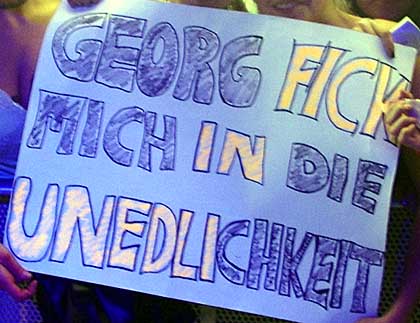 GEORG FICK
MICH IN DIE
UNEDLICHKEIT